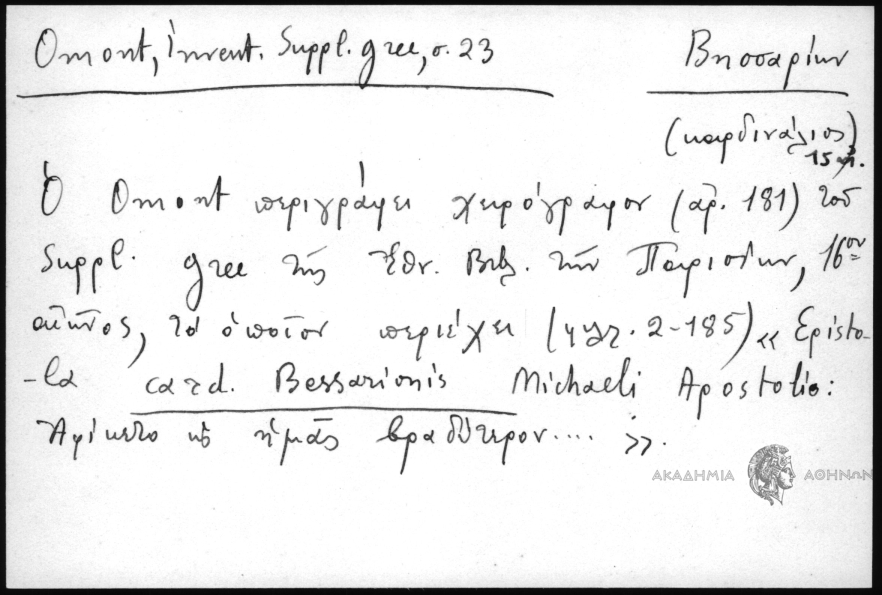 Omont, Invent. Suppl. grec, σ. 23
Βησσαρίων
(καρδινάλιος)
15 αἰ.
Ὁ Omont περιγράφει χειρόγραφον (ἀρ. 181) τοῦ
Suppl. grec τῆς Ἐθν. Βιβλ. τῶν Παρισίων, 16ου
αἰῶνος, τὸ ὁποῖον περιέχει (φυλ. 2-185) « Episto-
-la card. Bessarionis Michaeli Apostolio:
Ἀφίκετο ὡς ἡμᾶς βραδύτερον.... ».
ΑΚΑΔΗΜΙΑ ΑΘΗΝΩΝ